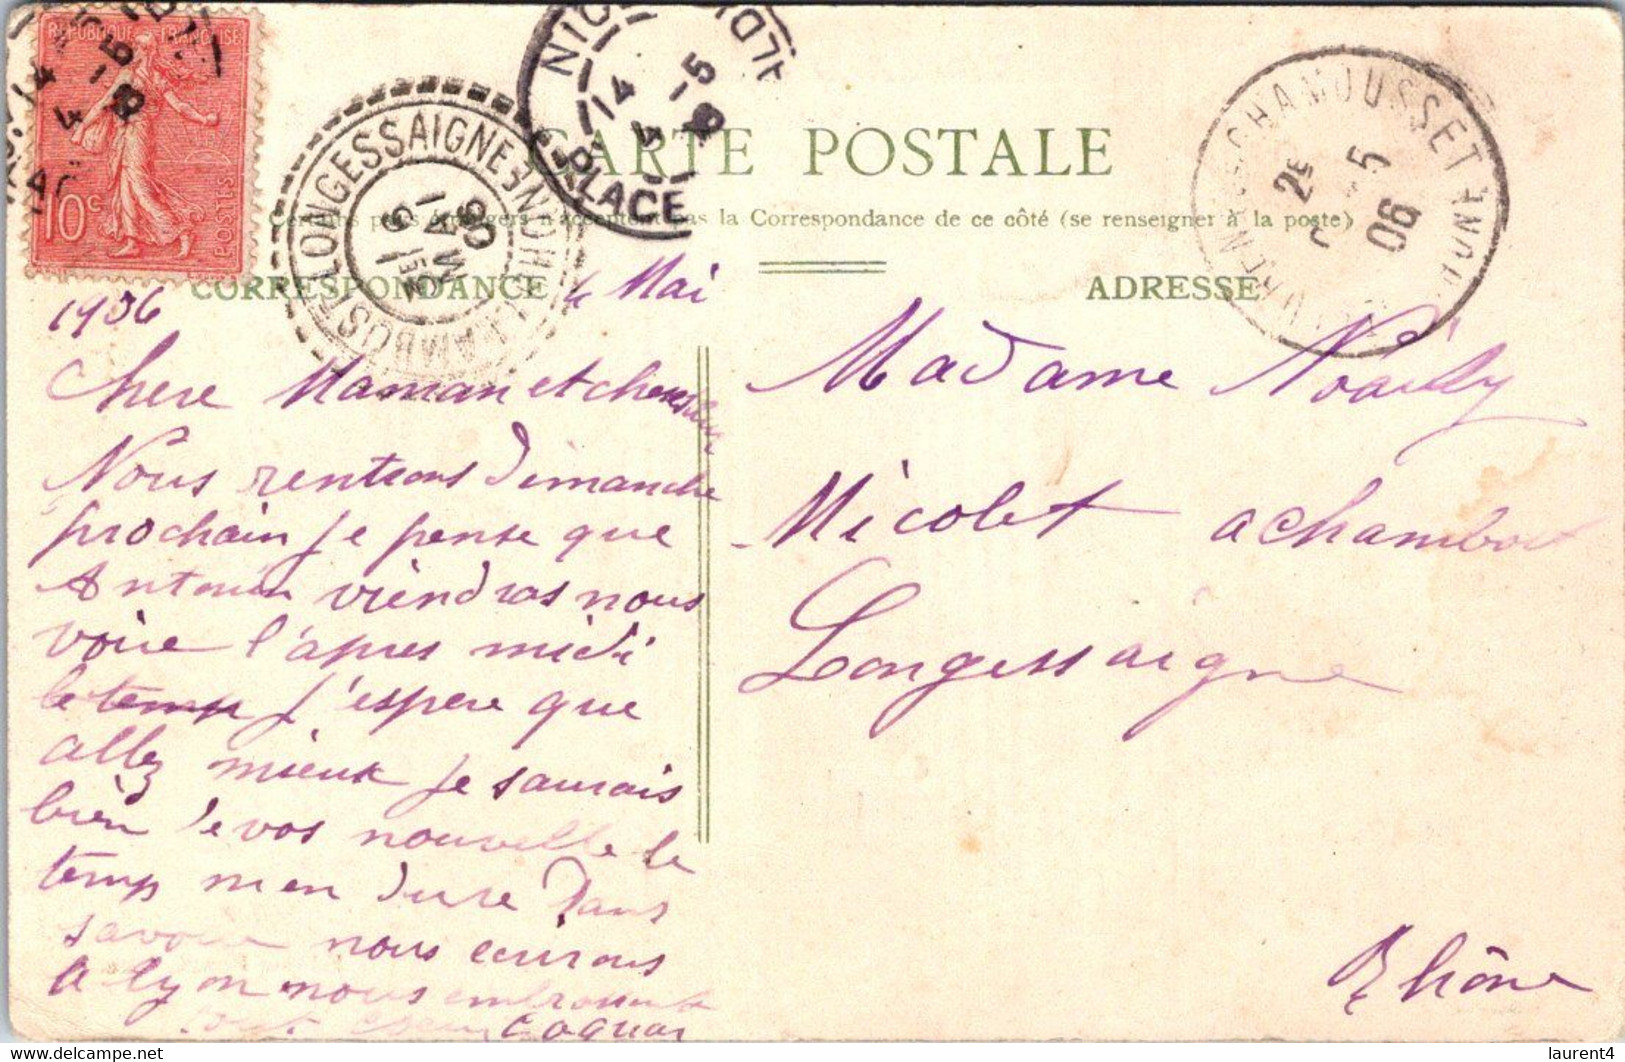 RÉPUBLIQUE FRANÇAISE
10c
POSTES
CARTE POSTALE
Certains pays étrangers n'acceptent pas la Correspondance de ce côté (se renseigner à la poste)
CORRESPONDANCE
ADRESSE
LONGESSAIGNE RHONE
MAI
06
14
5
PLACE
CHAMOUSSET RHONE
2E
5
06
4 Mai
1906
Chere Maman et chere
Nous rentrons dimanche
prochain je pense que
Antoine viendras nous
voire l'apres midi
le temp j'espere que
allez mieux je saurais
bien de vos nouvelle le
temp men dure dans
savoir nous ecirons
a lyon nous
Coquar
Madame Noailly
Nicolet a chambost
Longessaigne
Rhône
laurent4